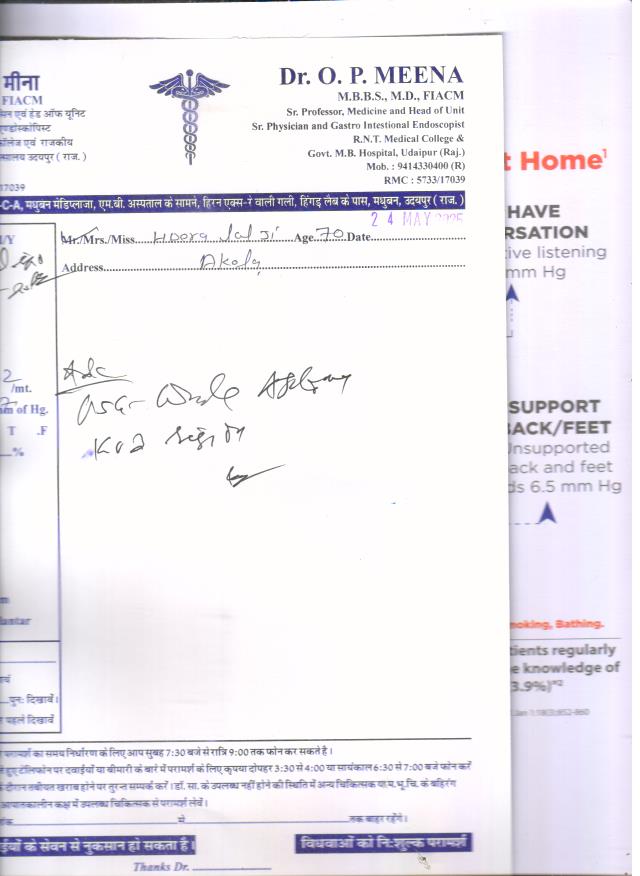 मीना
FIACM
सिन एवं हेड ऑफ यूनिट
एण्डोस्कोपिस्ट
कॉलेज एवं राजकीय
उदयपुर ( राज. )
17039
Dr. O. P. MEENA
M.B.B.S., M.D., FIACM
Sr. Professor, Medicine and Head of Unit
Sr. Physician and Gastro Intestional Endoscopist
R.N.T. Medical College &
Govt. M.B. Hospital, Udaipur (Raj.)
Mob. : 9414330400 (R)
RMC : 5733/17039
-C-A, मधुबन मेडिप्लाजा, एम.बी. अस्पताल के सामने, हिरन एक्स-रे वाली गली, हिंगड़ लैब के पास, मधुबन, उदयपुर ( राज. )
24 MAY 2025
Mr./Mrs./Miss Lal Ji Age 70 Date
Address
Adv
USG- Whole
KUB region
/mt.
of Hg.
T .F
%
पुन: दिखावें।
पहले दिखावें
परामर्श का समय निर्धारण के लिए आप सुबह 7:30 बजे से रात्रि 9:00 तक फोन कर सकते है।
हुए टेलिफोन पर दवाईयों या बीमारी के बारे में परामर्श के लिए कृपया दोपहर 3:30 से 4:00 या सायंकाल 6:30 से 7:00 बजे फोन करें
दौरान तबीयत खराब होने पर तुरन्त सम्पर्क करें। डॉ. सा. के उपलब्ध नहीं होने की स्थिति में अन्य चिकित्सक या म.भू.चि. के बहिरंग
आपातकालीन कक्ष में उपलब्ध चिकित्सक से परामर्श लेवें।
से तक बाहर रहेंगे।
के सेवन से नुकसान हो सकता है।
विधवाओं को नि:शुल्क परामर्श
Thanks Dr.
t Home¹
HAVE
RSATION
ive listening
mm Hg
SUPPORT
ACK/FEET
Unsupported
ack and feet
ds 6.5 mm Hg
moking, Bathing.
tients regularly
e knowledge of
3.9%)*²